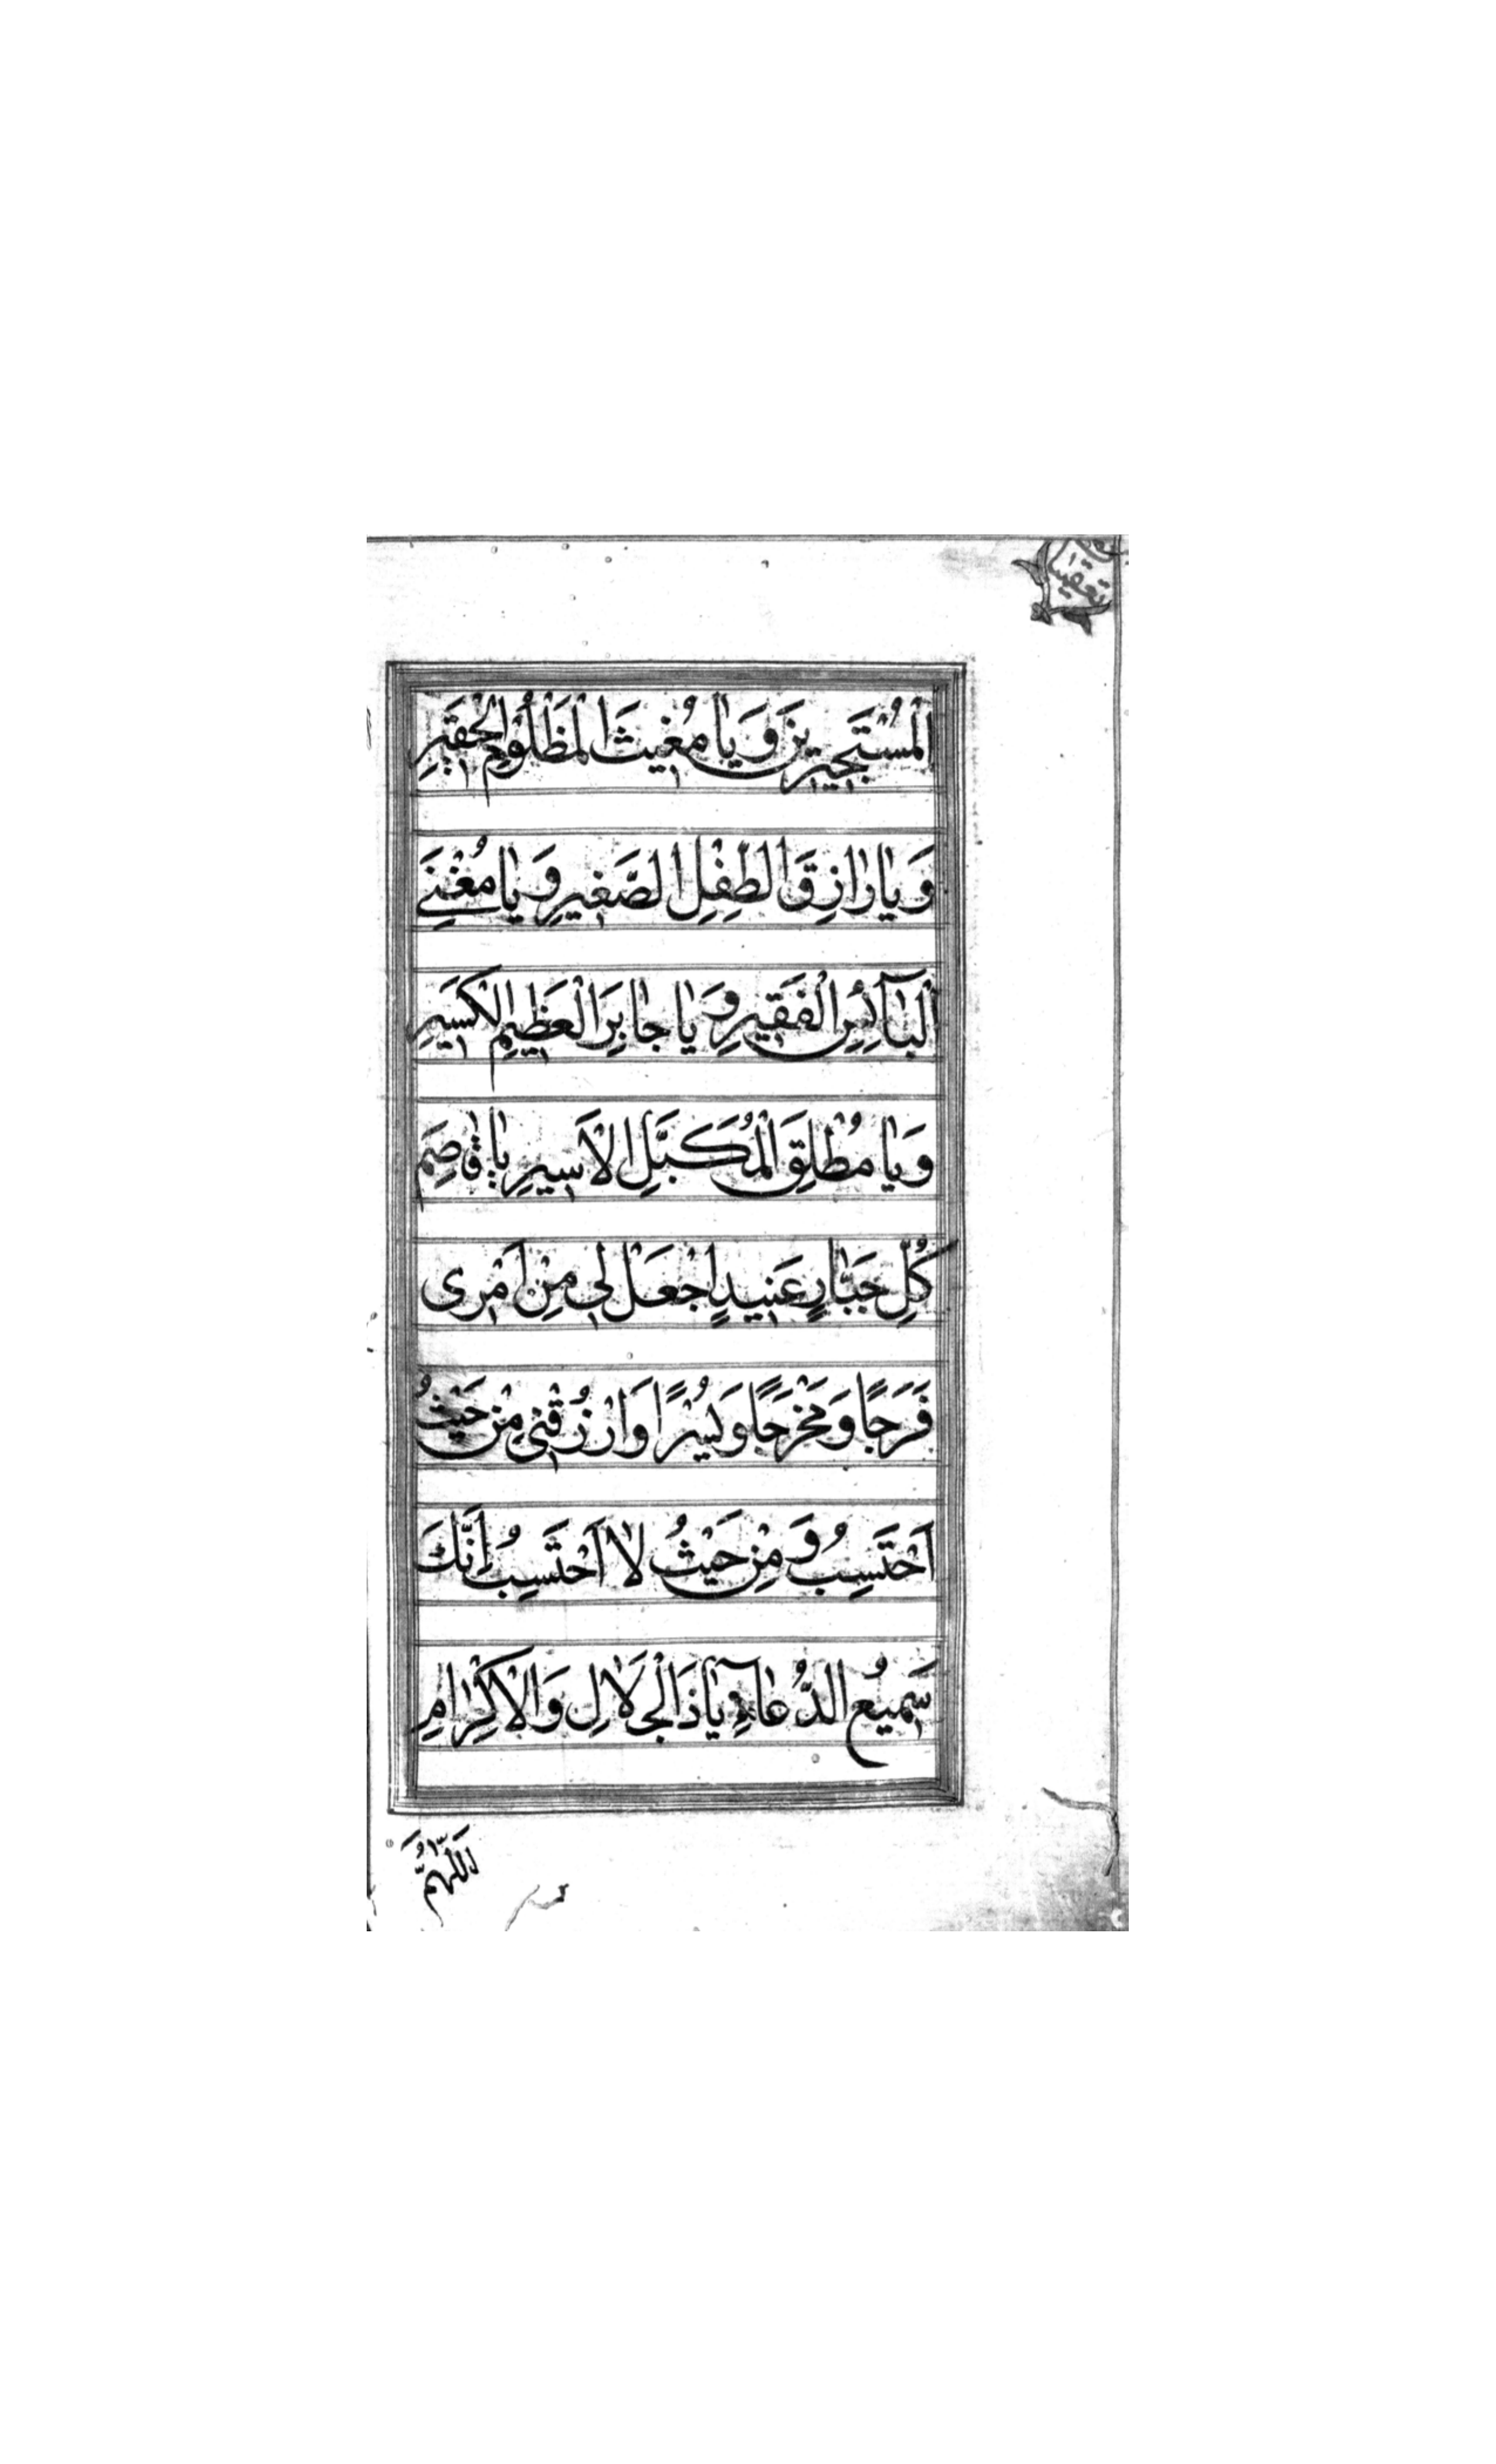 اَلْمُسْتَجٖيرٖينَ وَ يٰا مُغٖيثَ الْمَظْلُوْمِ الْحَقٖيرِ
وَ يٰا رٰازِقَ الطِّفْلِ الصَّغٖيرِ وَ يٰا مُغْنِيَ
الْبٰآئِسِ الْفَقٖيرِ وَ يٰا جٰابِرَ الْعَظٖيمِ الْكَسٖيرِ
وَ يٰا مُطْلِقَ الْمُكَبَّلِ الْاَسٖيرِ يٰا قٰاصِمَ
كُلِّ جَبّٰارٍ عَنٖيدٍ اِجْعَلْ لٖى مِنْ اَمْرٖى
فَرَجًا وَ مَخْرَجًا وَ يُسْرًا وَارْزُقْنٖى مِنْ حَيْثُ
اَحْتَسِبُ وَ مِنْ حَيْثُ لٰا اَحْتَسِبُ اِنَّكَ
سَمٖيعُ الدُّعٰآءِ يٰا ذَالْجَلٰالِ وَ الْاِكْرٰامِ
اَللّٰهُمَّ